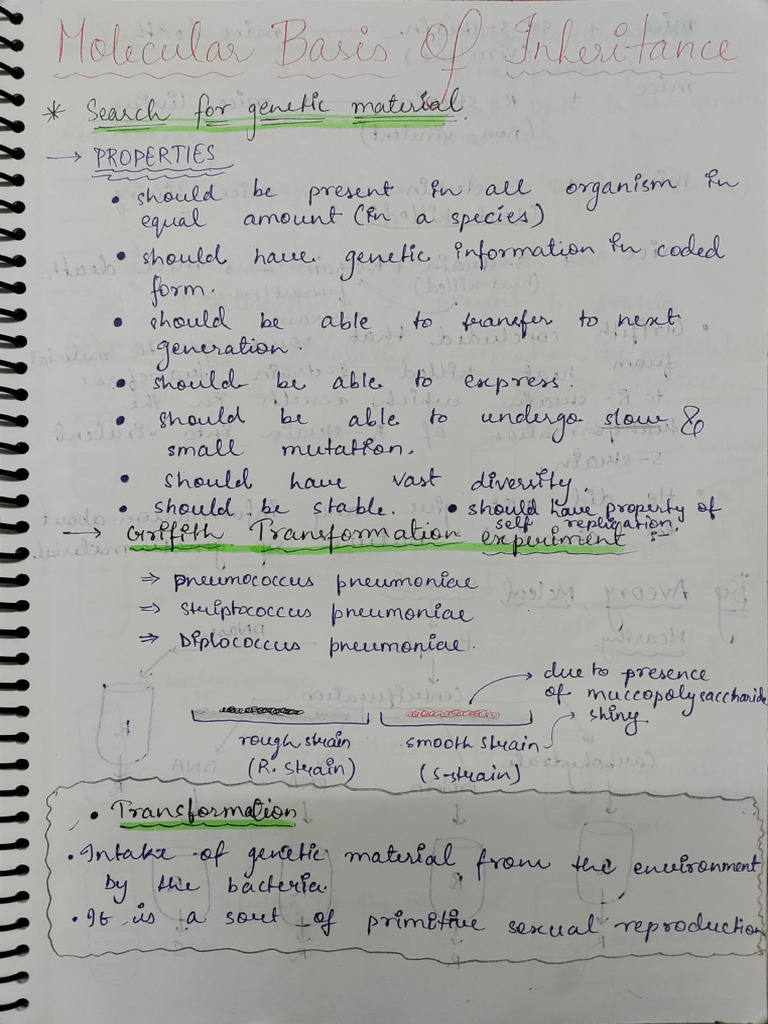 Molecular Basis Of Inheritance
* Search for genetic material.
→ PROPERTIES
• should be present in all organism in
equal amount (in a species)
• should have genetic information in coded
form.
• should be able to transfer to next
generation.
• should be able to express.
• should be able to undergo slow &
small mutation.
• should have vast diversity.
• should be stable. • should have property of
self replication.
→ Griffith Transformation experiment :-
⇒ pneumococcus pneumoniae
⇒ striptococcus pneumoniae
⇒ Diplococcus pneumoniae.
due to presence
of muccopolysaccharide
shiny
rough strain smooth strain
(R. strain) (S-strain)
• Transformation
• Intake of genetic material from the environment
by the bacteria.
• It is a sout of primitive sexual reproduction